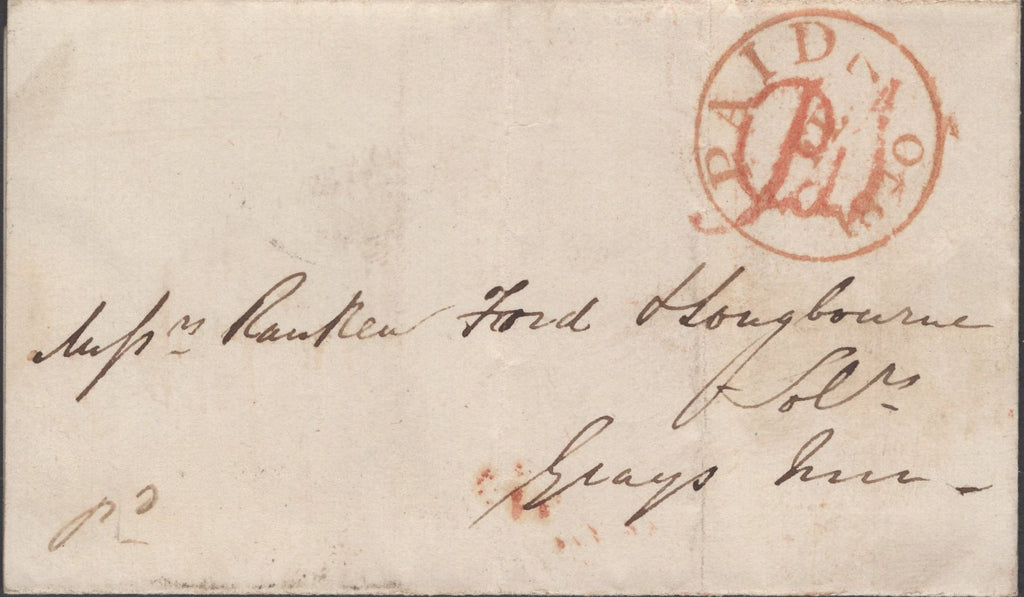 PAID
1d
Messrs Ranken Ford & Longbourne
Solrs
Grays Inn -
pd